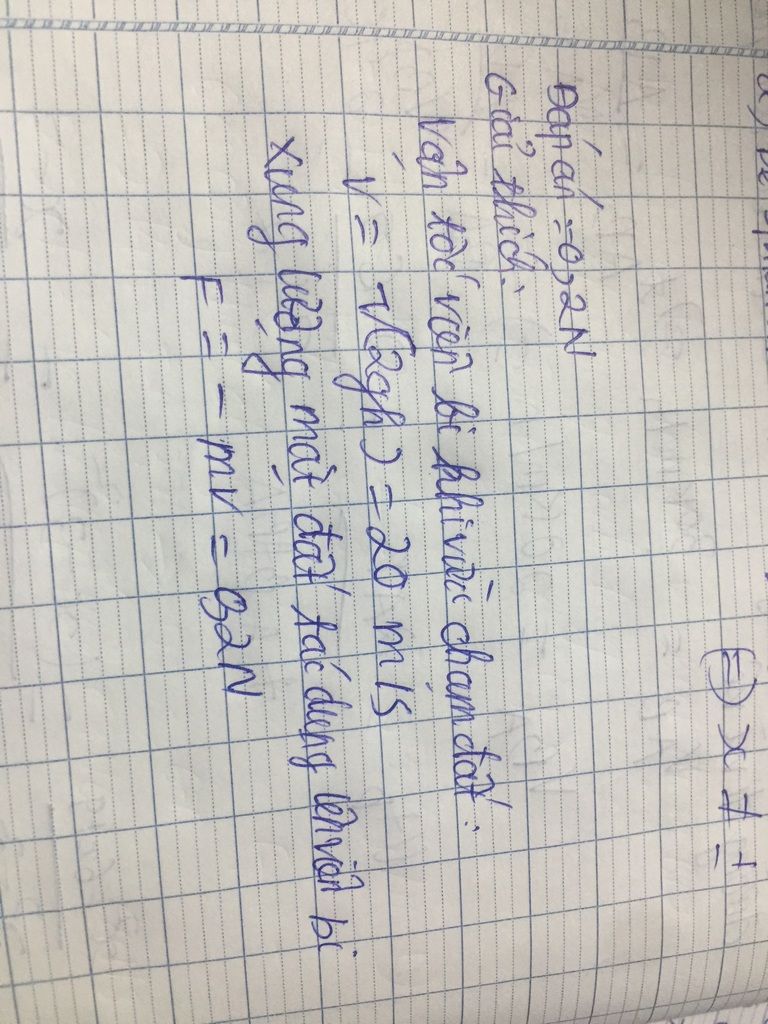 Đáp án = 0,2N
Giải thích:
Vận tốc viên bi khi vừa chạm đất:
v = √(2gh) = 20 m/s
Xung lượng mặt đất tác dụng lên viên bi
F = - mv = 0,2N
(=) x ≠ ±